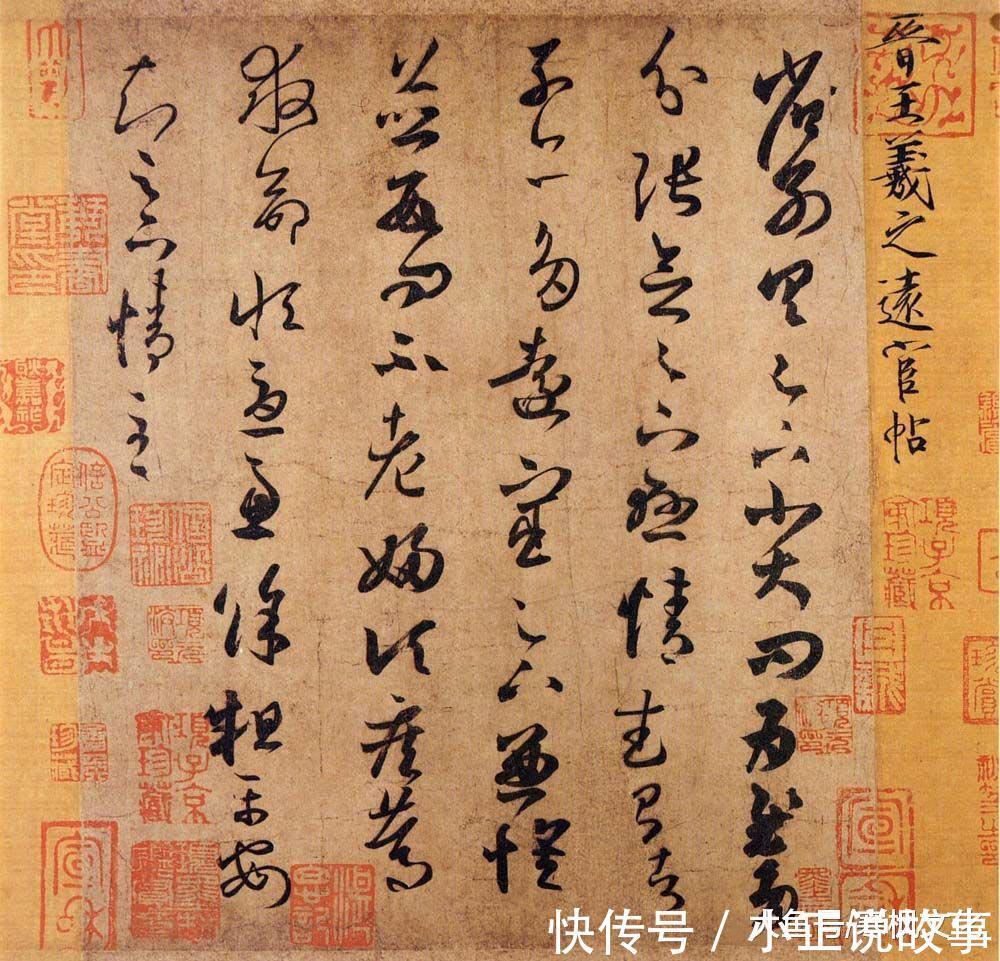 晉王羲之遠宦帖
省別具足下小大問為慰多
分張念足下懸情武昌諸
子亦多遠宦足下兼懷
並數問不老婦頃疾篤
救命恒憂慮餘粗平安
知足下情至
項子京家珍藏
項子京家珍藏
快传号 / 小正说故事